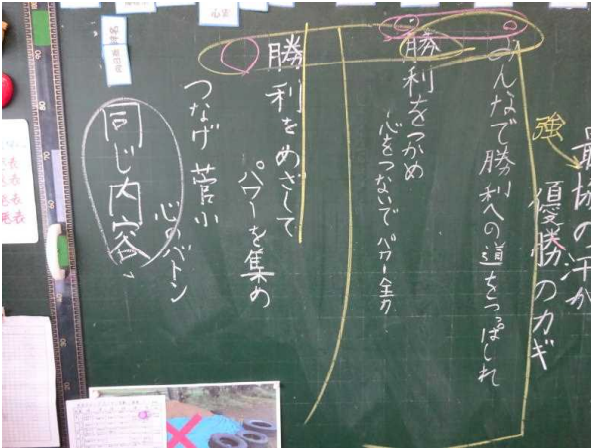 最強の汗が
強
優勝のカギ
みんなで勝利への道をつっぱしれ
勝利をつかめ
心をつないでパワー全力
勝利をめざして
パワーを集め
つなげ 菅小
心のバトン
同じ内容